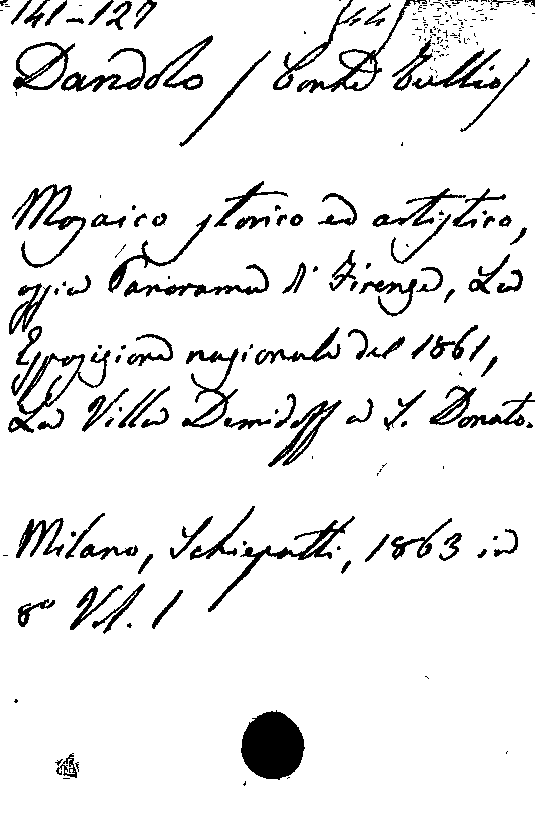 141-127 (44)
Dandolo (Conte Tullio)
Mosaico storico ed artistico,
ossia Panorama di Firenze, La
Esposizione nazionale del 1861,
La Villa Demidoff a S. Donato.
Milano, Schiepatti, 1863 in
8º Vol. 1